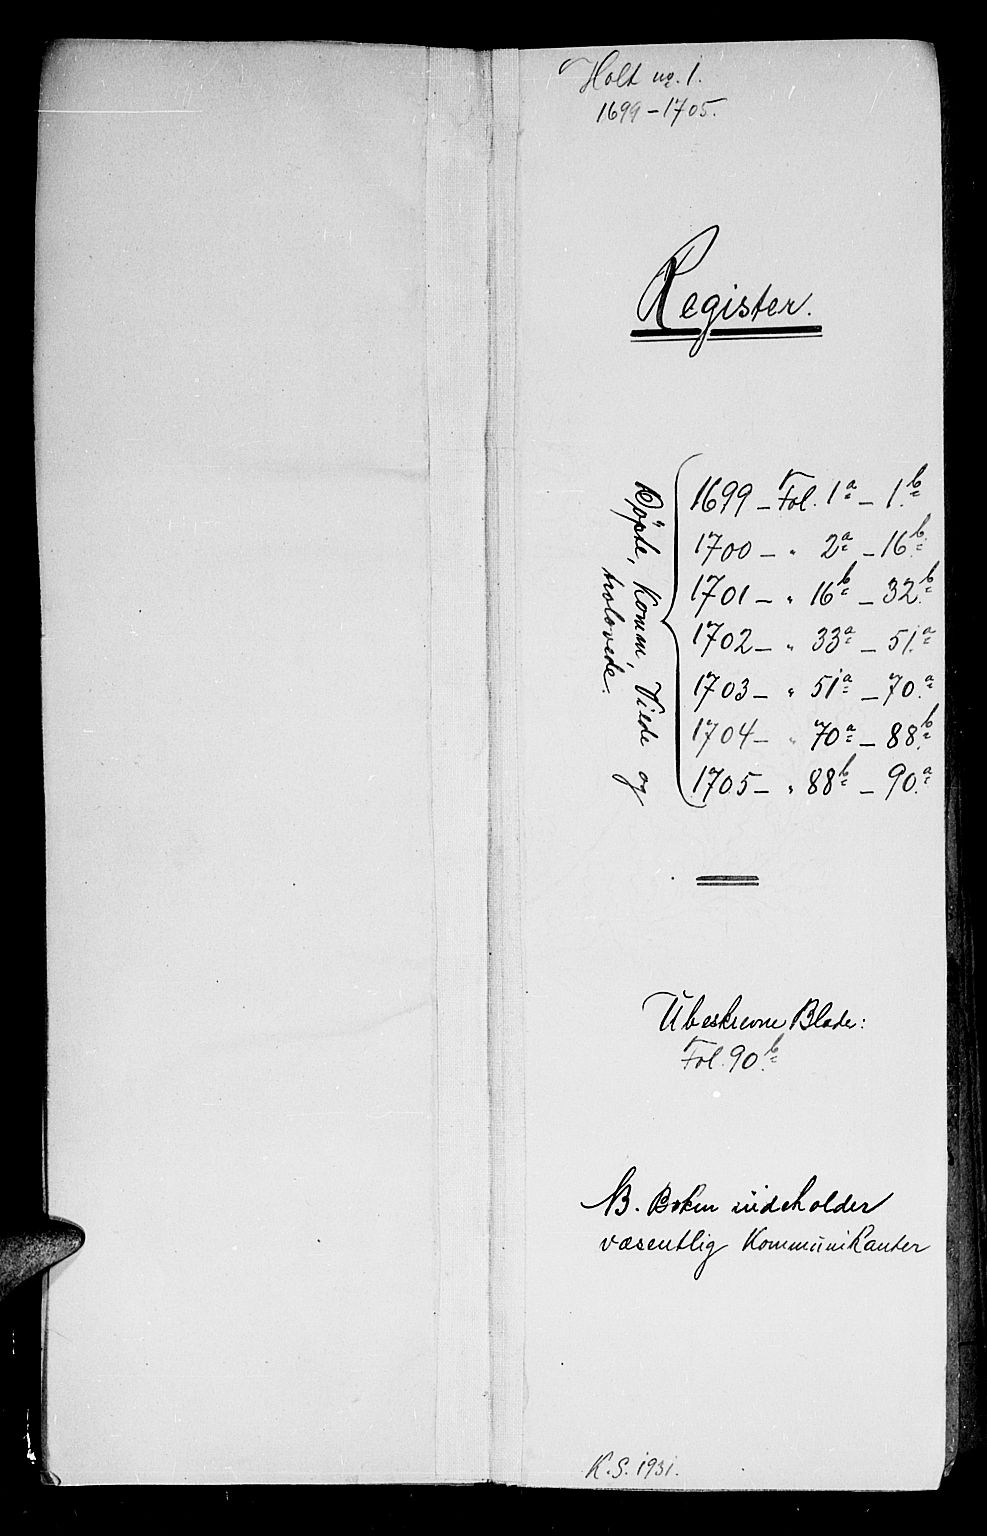 Holt nr. 1.
1699-1705.
Register.
Døpte, Komm., Viede og
trolovede.
1699 – Fol. 1a – 1.b
1700 – " 2a – 16b
1701 – " 16b – 32.b
1702 – " 33a – 51.a
1703 – " 51a – 70.a
1704 – " 70a – 88.b
1705 – " 88b – 90.a
Ubeskrevne Blade:
Fol. 90.b
NB. Boken indeholder
væsentlig Kommunikanter
K.S. 1931.